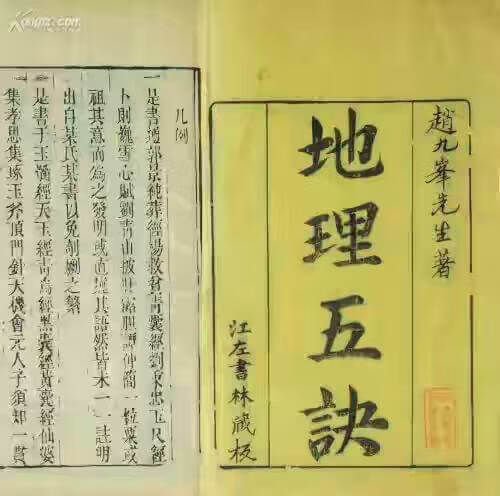 趙九峯先生著
地理五訣
江左書林藏板
凡例
一是書遵郭景純葬經楊救貧青囊經劉秉忠玉尺經
卜則巍雪心賦劉青山披肝露膽譚仲簡一粒粟或
祖其意而為之發明或直捷其語然皆未一一註明
出自某氏某書以免剞劂之繁
一是書于玉髓經天玉經青烏經黑囊經黃囊經仙婆
集孝思集琢玉斧頂門針天機會元人子須知一貫